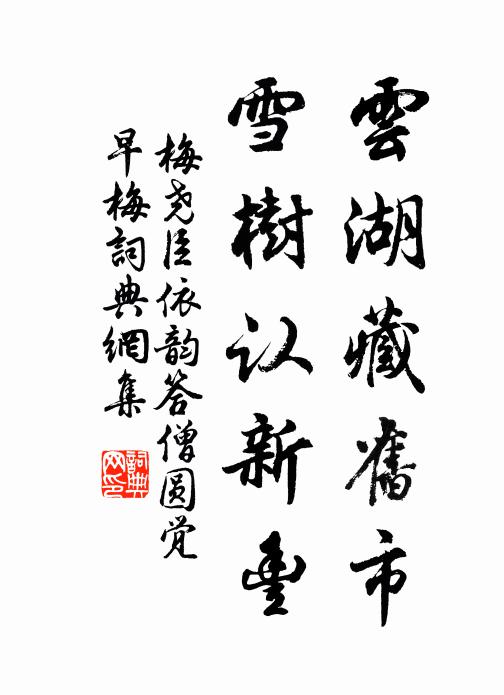 雲湖藏舊市
雪樹认新豐
梅尧臣依韵答僧圆觉
早梅詞典網集
詞典
网印